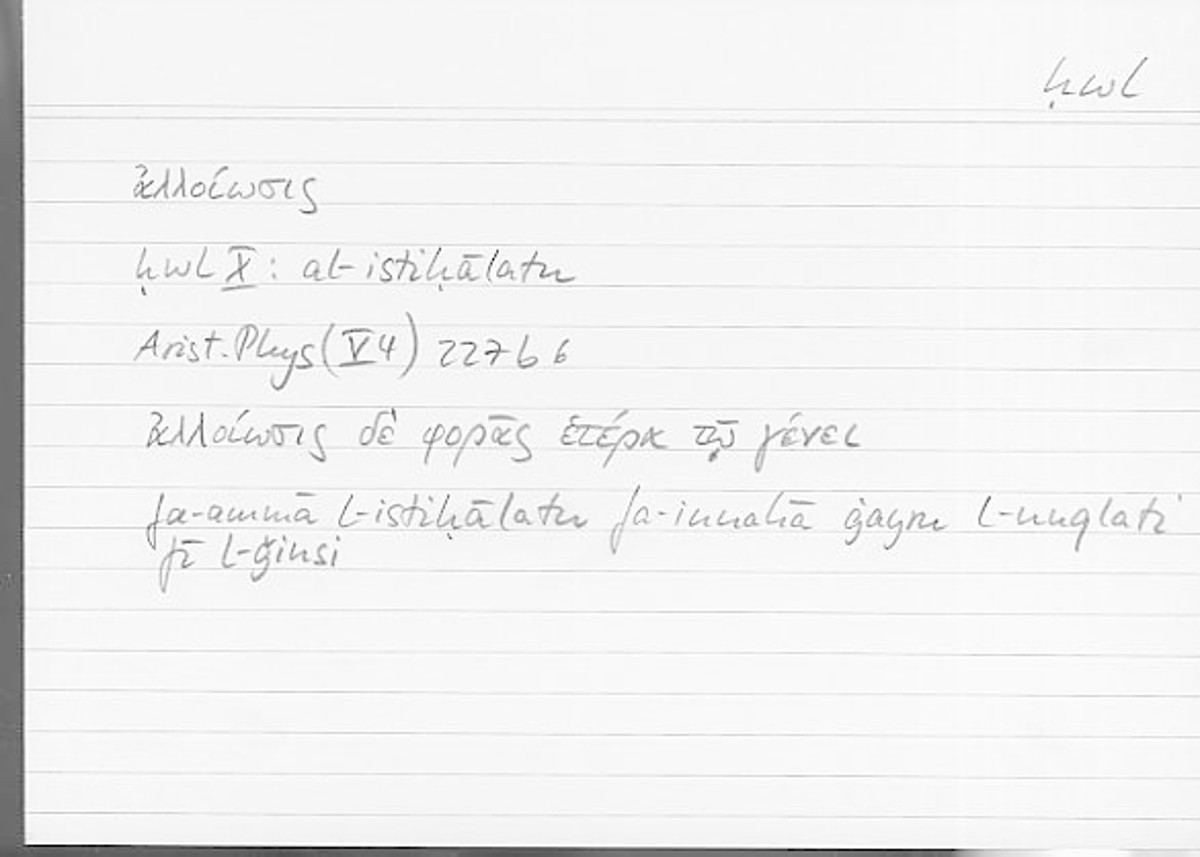 ḥwl
ἀλλοίωσις
ḥwl X: al-istiḥālatu
Arist. Phys (V 4) 227b 6
ἀλλοίωσις δὲ φορᾶς ἑτέρα τῷ γένει
fa-ammā l-istiḥālatu fa-innahā ġayru l-nuqlati
fī l-ǧinsi